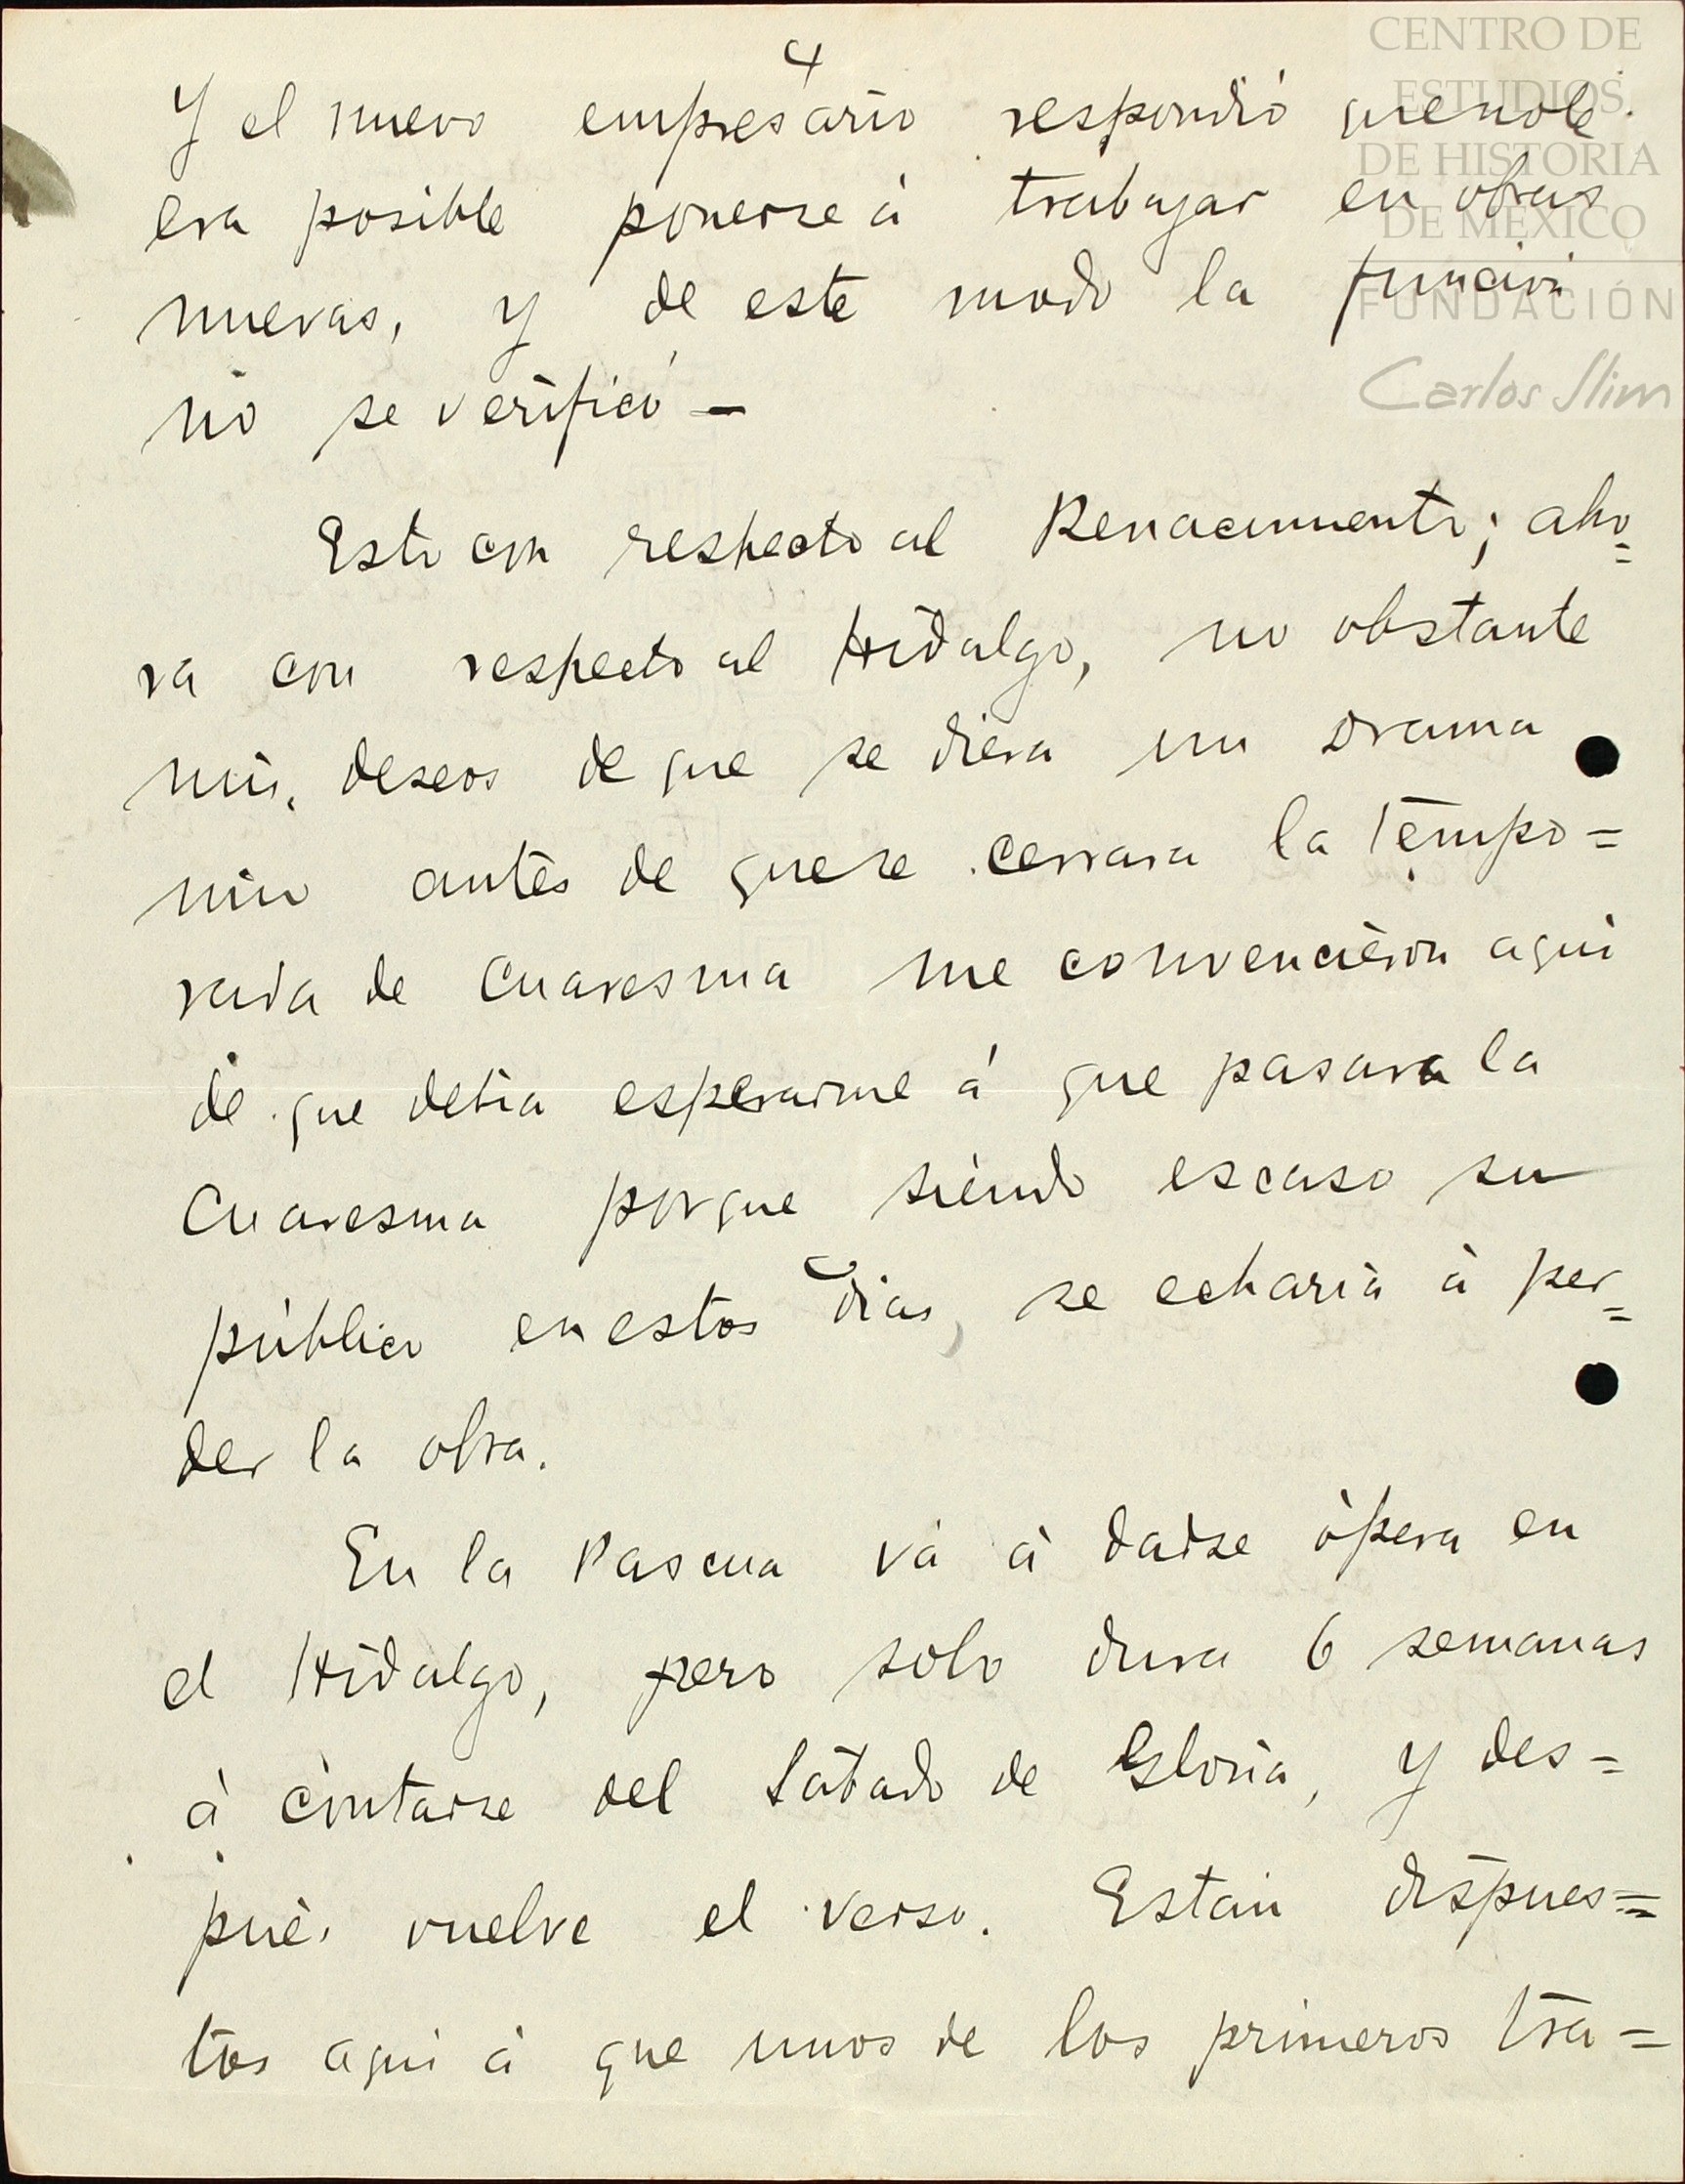 4
CENTRO DE
ESTUDIOS
DE HISTORIA
DE MEXICO
FUNDACIÓN
Carlos Slim
Y el nuevo empresario respondió que no le
era posible ponerse á trabajar en obras
nuevas, y de este modo la función
no se verificó —
Esto con respecto al Renacimiento; aho=
ra con respecto al Hidalgo, no obstante
mis deseos de que se diera un Drama
mio antes de que se cerrara la tempo=
rada de Cuaresma me convencieron aqui
de que debia esperarme á que pasara la
Cuaresma porque siendo escaso su
público en estos dias, se echaria á per=
der la obra.
En la Pascua vá á darse ópera en
el Hidalgo, pero solo dura 6 semanas
á contarse del Sábado de Gloria, y des=
pués vuelve el verso. Están dispues=
tos aqui á que unos de los primeros tra=